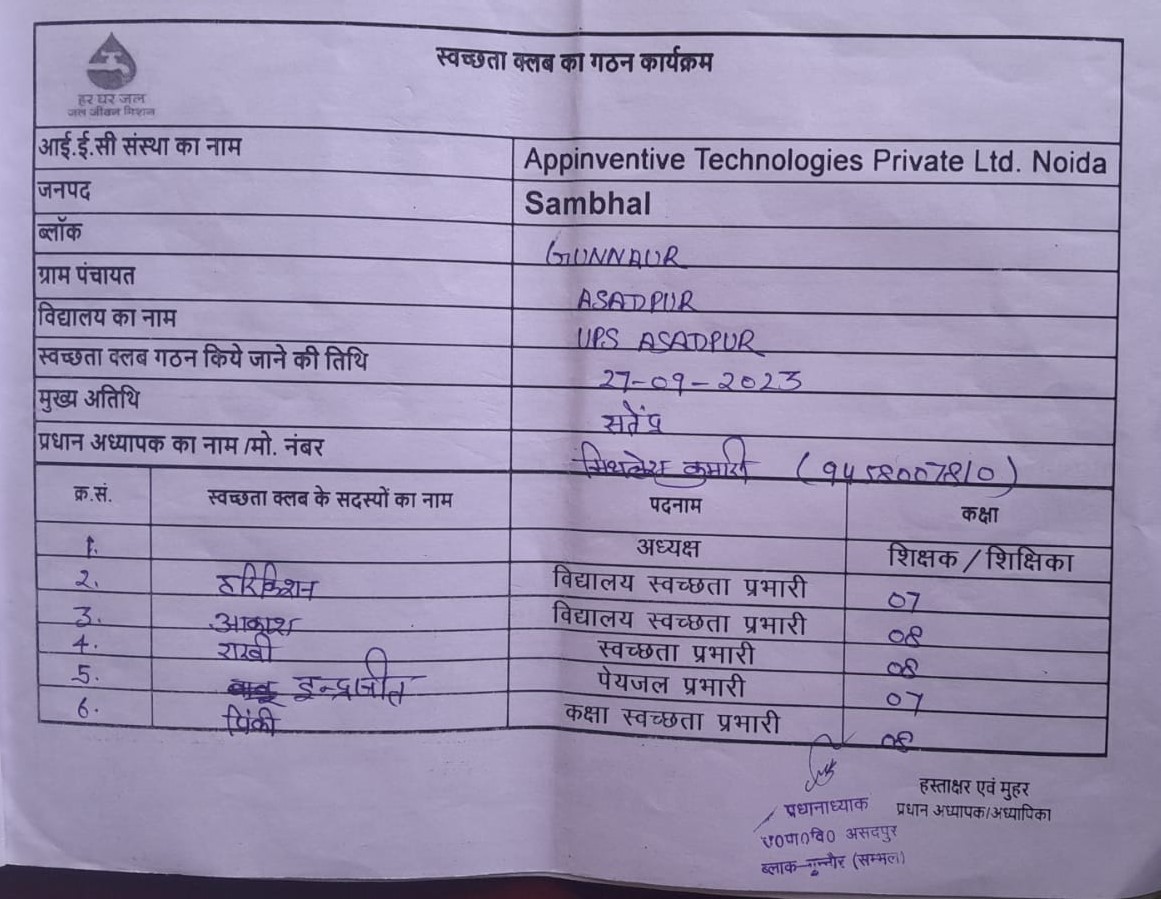 हर घर जल
जल जीवन मिशन
स्वच्छता क्लब का गठन कार्यक्रम
आई.ई.सी संस्था का नाम Appinventive Technologies Private Ltd. Noida
जनपद Sambhal
ब्लॉक GUNNAUR
ग्राम पंचायत ASADPUR
विद्यालय का नाम UPS ASADPUR
स्वच्छता क्लब गठन किये जाने की तिथि 27-09-2023
मुख्य अतिथि सतेंद्र
प्रधान अध्यापक का नाम /मो. नंबर मिथलेश कुमारी (9458007810)
क्र.सं. स्वच्छता क्लब के सदस्यों का नाम पदनाम कक्षा
1. अध्यक्ष शिक्षक / शिक्षिका
2. हरिकिशन विद्यालय स्वच्छता प्रभारी 07
3. आकाश विद्यालय स्वच्छता प्रभारी 08
4. राखी स्वच्छता प्रभारी 08
5. इन्द्रजीत पेयजल प्रभारी 07
6. पिंकी कक्षा स्वच्छता प्रभारी 08
हस्ताक्षर एवं मुहर
प्रधान अध्यापक/अध्यापिका
प्रधानाध्याक
उ०प्रा०वि० असदपुर
ब्लाक-गुन्नौर (सम्भल)